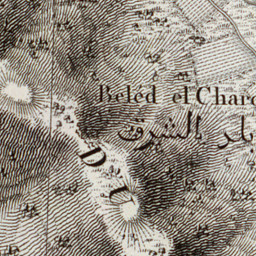 Beléd el Charq
بلد الشرق
DU